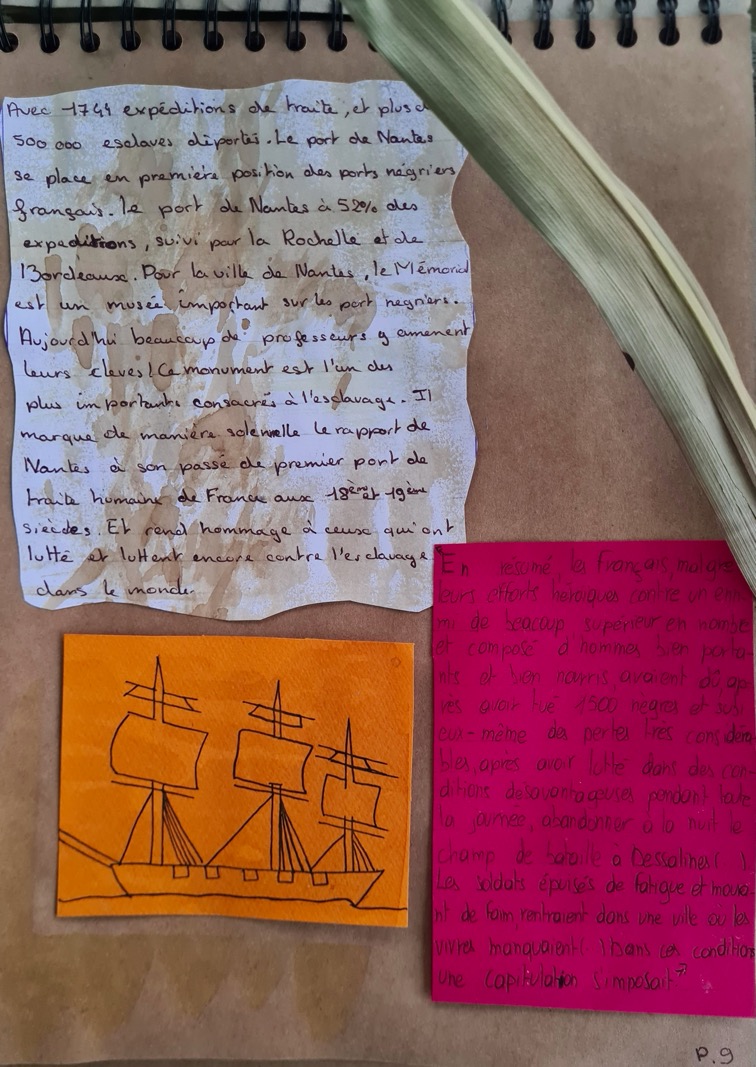 Avec 1744 expéditions de traite, et plus d
500 000 esclaves déportés. Le port de Nantes
se place en première position des ports négriers
français. Le port de Nantes à 52% des
expeditions, suivi par la Rochelle et de
Bordeaux. Pour la ville de Nantes, le Mémorial
est un musée important sur les port negriers.
Aujourd'hui beaucoup de professeurs y amenent
leurs eleves! Ce monument est l'un des
plus importants consacrés à l'esclavage. Il
marque de manière solennelle le rapport de
Nantes à son passé de premier port de
traite humaine de France aux 18ème et 19ème
siècles. Et rend hommage à ceux qui ont
lutté et luttent encore contre l'esclavage
dans le monde.
"En résumé, les Français, malgré
leurs efforts héroïques contre un enne
mi de beaucoup supérieur en nombre
et composé d'hommes bien porta-
nts et bien nourris, avaient dû, ap-
rès avoir tué 1500 nègres et subi
eux-même des pertes très considéra-
bles, après avoir lutté dans des con-
ditions désavantageuses pendant toute
la journée, abandonner à la nuit le
champ de bataille à Dessalines( )
Les soldats épuisés de fatigue et moura-
nt de faim, rentraient dans une ville où les
vivres manquaient( ) Dans ces conditions
une capitulation s'imposait"
P.9